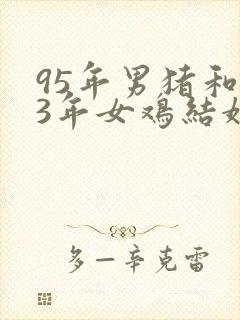 95年男猪和
3年女鸡結婚
多一辛克雷